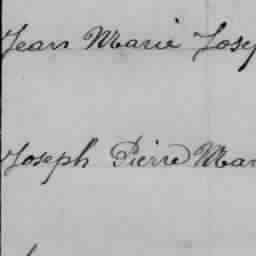 Jean Marie Josep
Joseph Pierre Mar